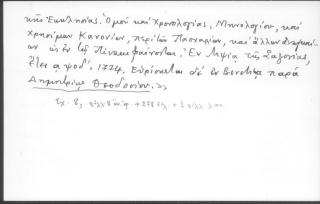 κῆς Ἐκκλησίας. Ὁμοῦ καὶ Χρονολογίας, Μηνολογίου, καὶ
χρησίμων Κανονίων, περὶ τῶν Πασχαλίων, καὶ ἄλλων ἀναγκαί-
ων ὡς ἐν τῷ Πίνακι φαίνονται. Ἐν Λειψίᾳ τῆς Σαξονίας,
Ἔτει αψοδ΄. 1774. Εὑρίσκεται δὲ ἐν Βενετίᾳ παρὰ
Δημητρίῳ Θεοδοσίου.>>
Σχ. 8, + 278 σελ. + 1